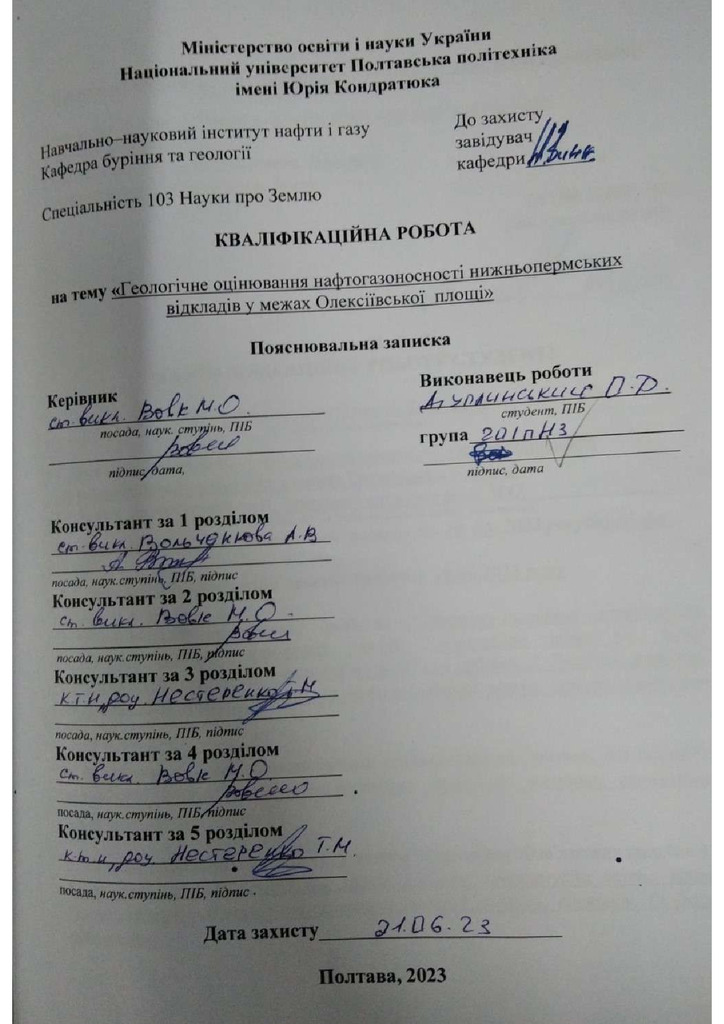 Міністерство освіти і науки України
Національний університет Полтавська політехніка
імені Юрія Кондратюка
Навчально–науковий інститут нафти і газу
Кафедра буріння та геології
До захисту
завідувач
кафедри
Спеціальність 103 Науки про Землю
КВАЛІФІКАЦІЙНА РОБОТА
на тему «Геологічне оцінювання нафтогазоносності нижньопермських
відкладів у межах Олексіївської площі»
Пояснювальна записка
Керівник
ст. викл. Вовк М.О.
посада, наук. ступінь, ПІБ
підпис, дата,
Виконавець роботи
П.Д.
студент, ПІБ
група 201пНЗ
підпис, дата
Консультант за 1 розділом
ст. викл. А.В
посада, наук.ступінь, ПІБ, підпис
Консультант за 2 розділом
ст. викл. Вовк М.О.
посада, наук.ступінь, ПІБ, підпис
Консультант за 3 розділом
к.т.н, доц. Нестеренко Т.М
посада, наук.ступінь, ПІБ, підпис
Консультант за 4 розділом
ст. викл. Вовк М.О.
посада, наук.ступінь, ПІБ, підпис
Консультант за 5 розділом
к.т.н, доц. Нестеренко Т.М.
посада, наук.ступінь, ПІБ, підпис
Дата захисту 21.06.23
Полтава, 2023